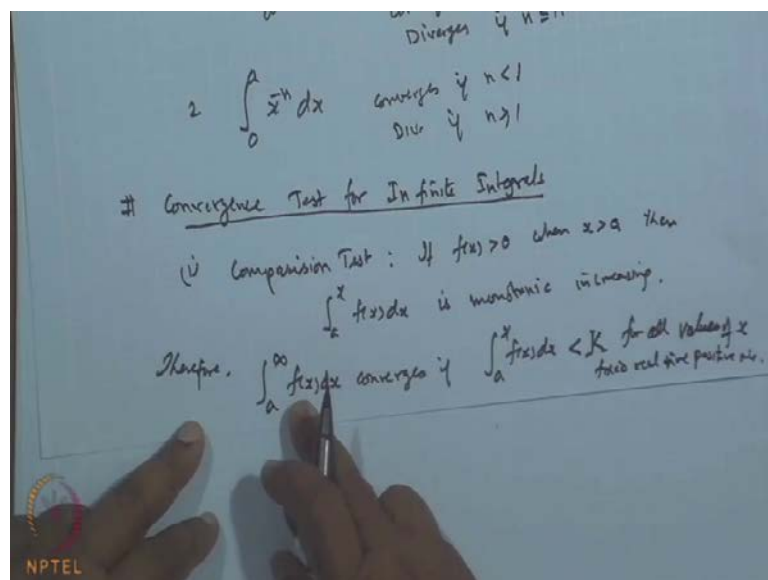 Diverges if n ≤
2 ∫_0^a x^{-n} dx converges if n < 1
Div if n ≥ 1
# Convergence Test for Infinite Integrals
(i) Comparision Test : If f(x) > 0 when x > a then
∫_a^x f(x)dx is monotonic increasing.
Therefore. ∫_a^∞ f(x)dx converges if ∫_a^x f(x)dx < K for all values of x
fixed real positive no.
NPTEL